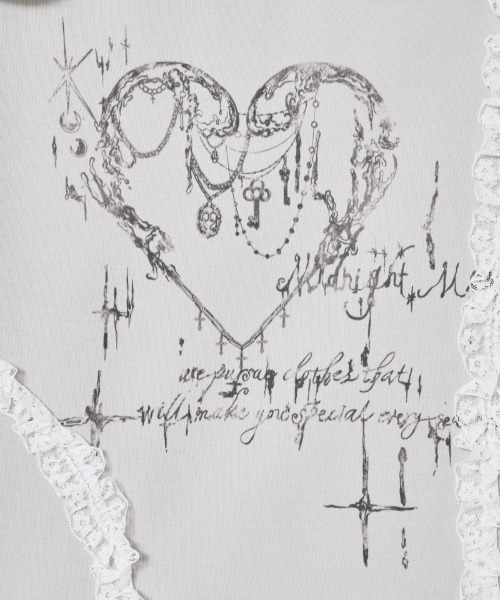 Midnight M
we pursue clothes that
will make you special every sea